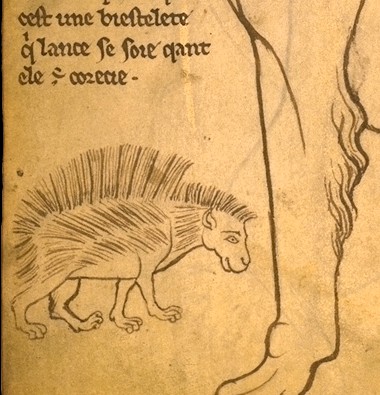 cest une biestelete
qͥ lance se soie qant
ele ÷ corecie .